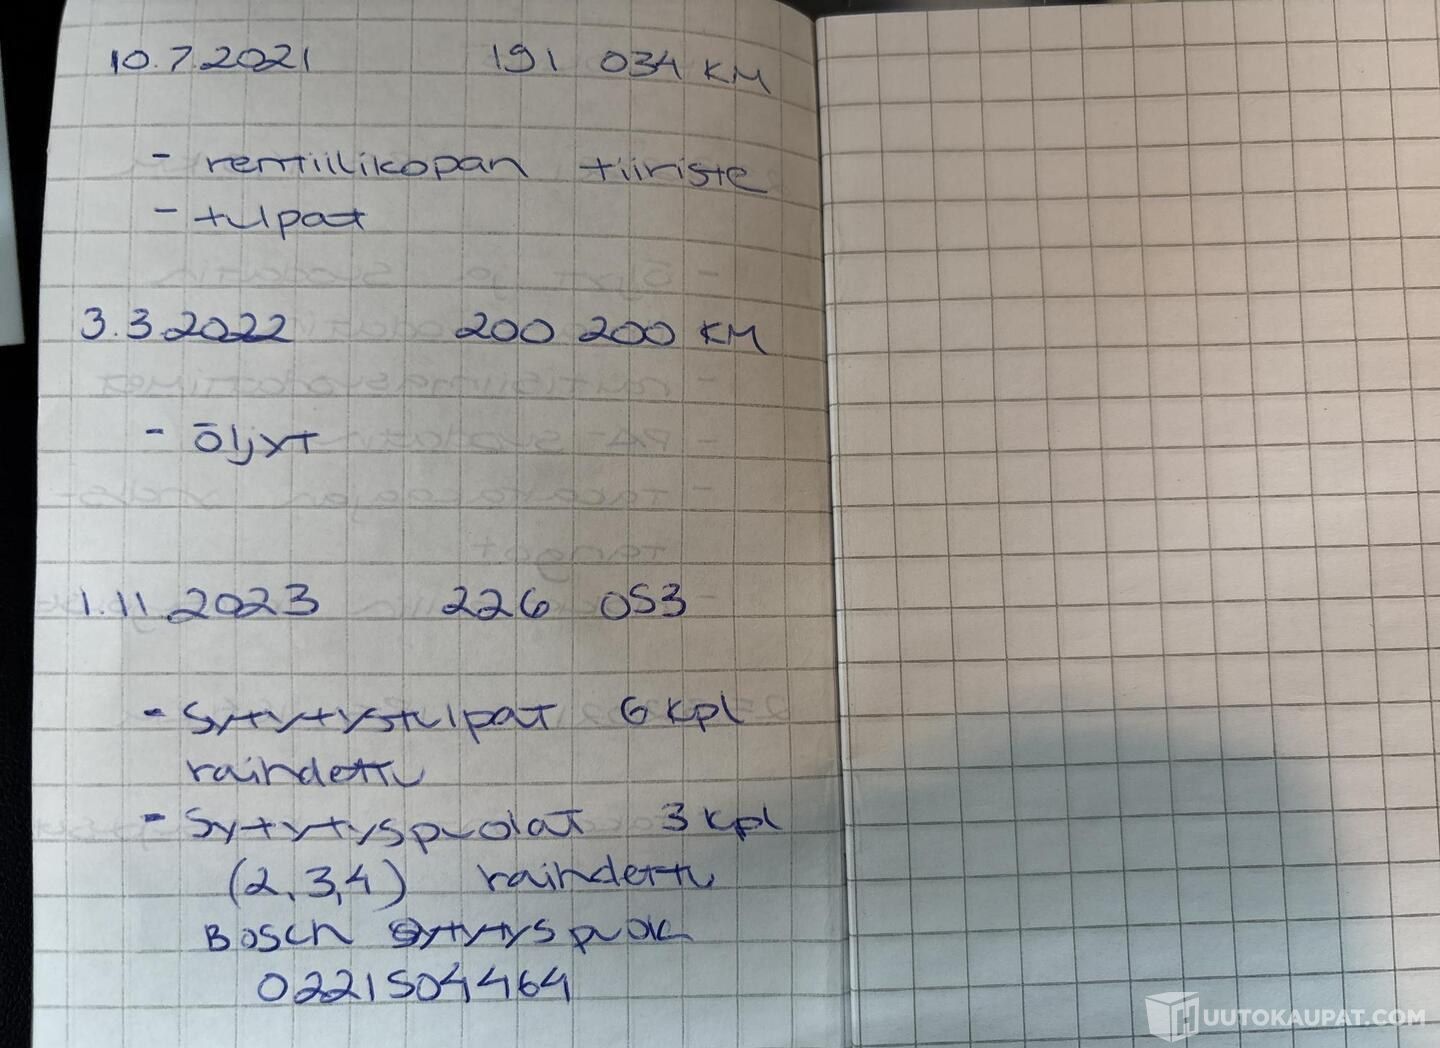 10.7.2021 191 034 KM
- rentiilikopan tiiriste
- tulpat
3.3.2022 200 200 KM
- öljyt
1.11.2023 226 053
- Sytytystulpat 6 kpl
raihdettu
- Sytytyspuolat 3 kpl
(2,3,4) raihdettu
Bosch sytytyspuola
0221504464
HUUTOKAUPAT.COM